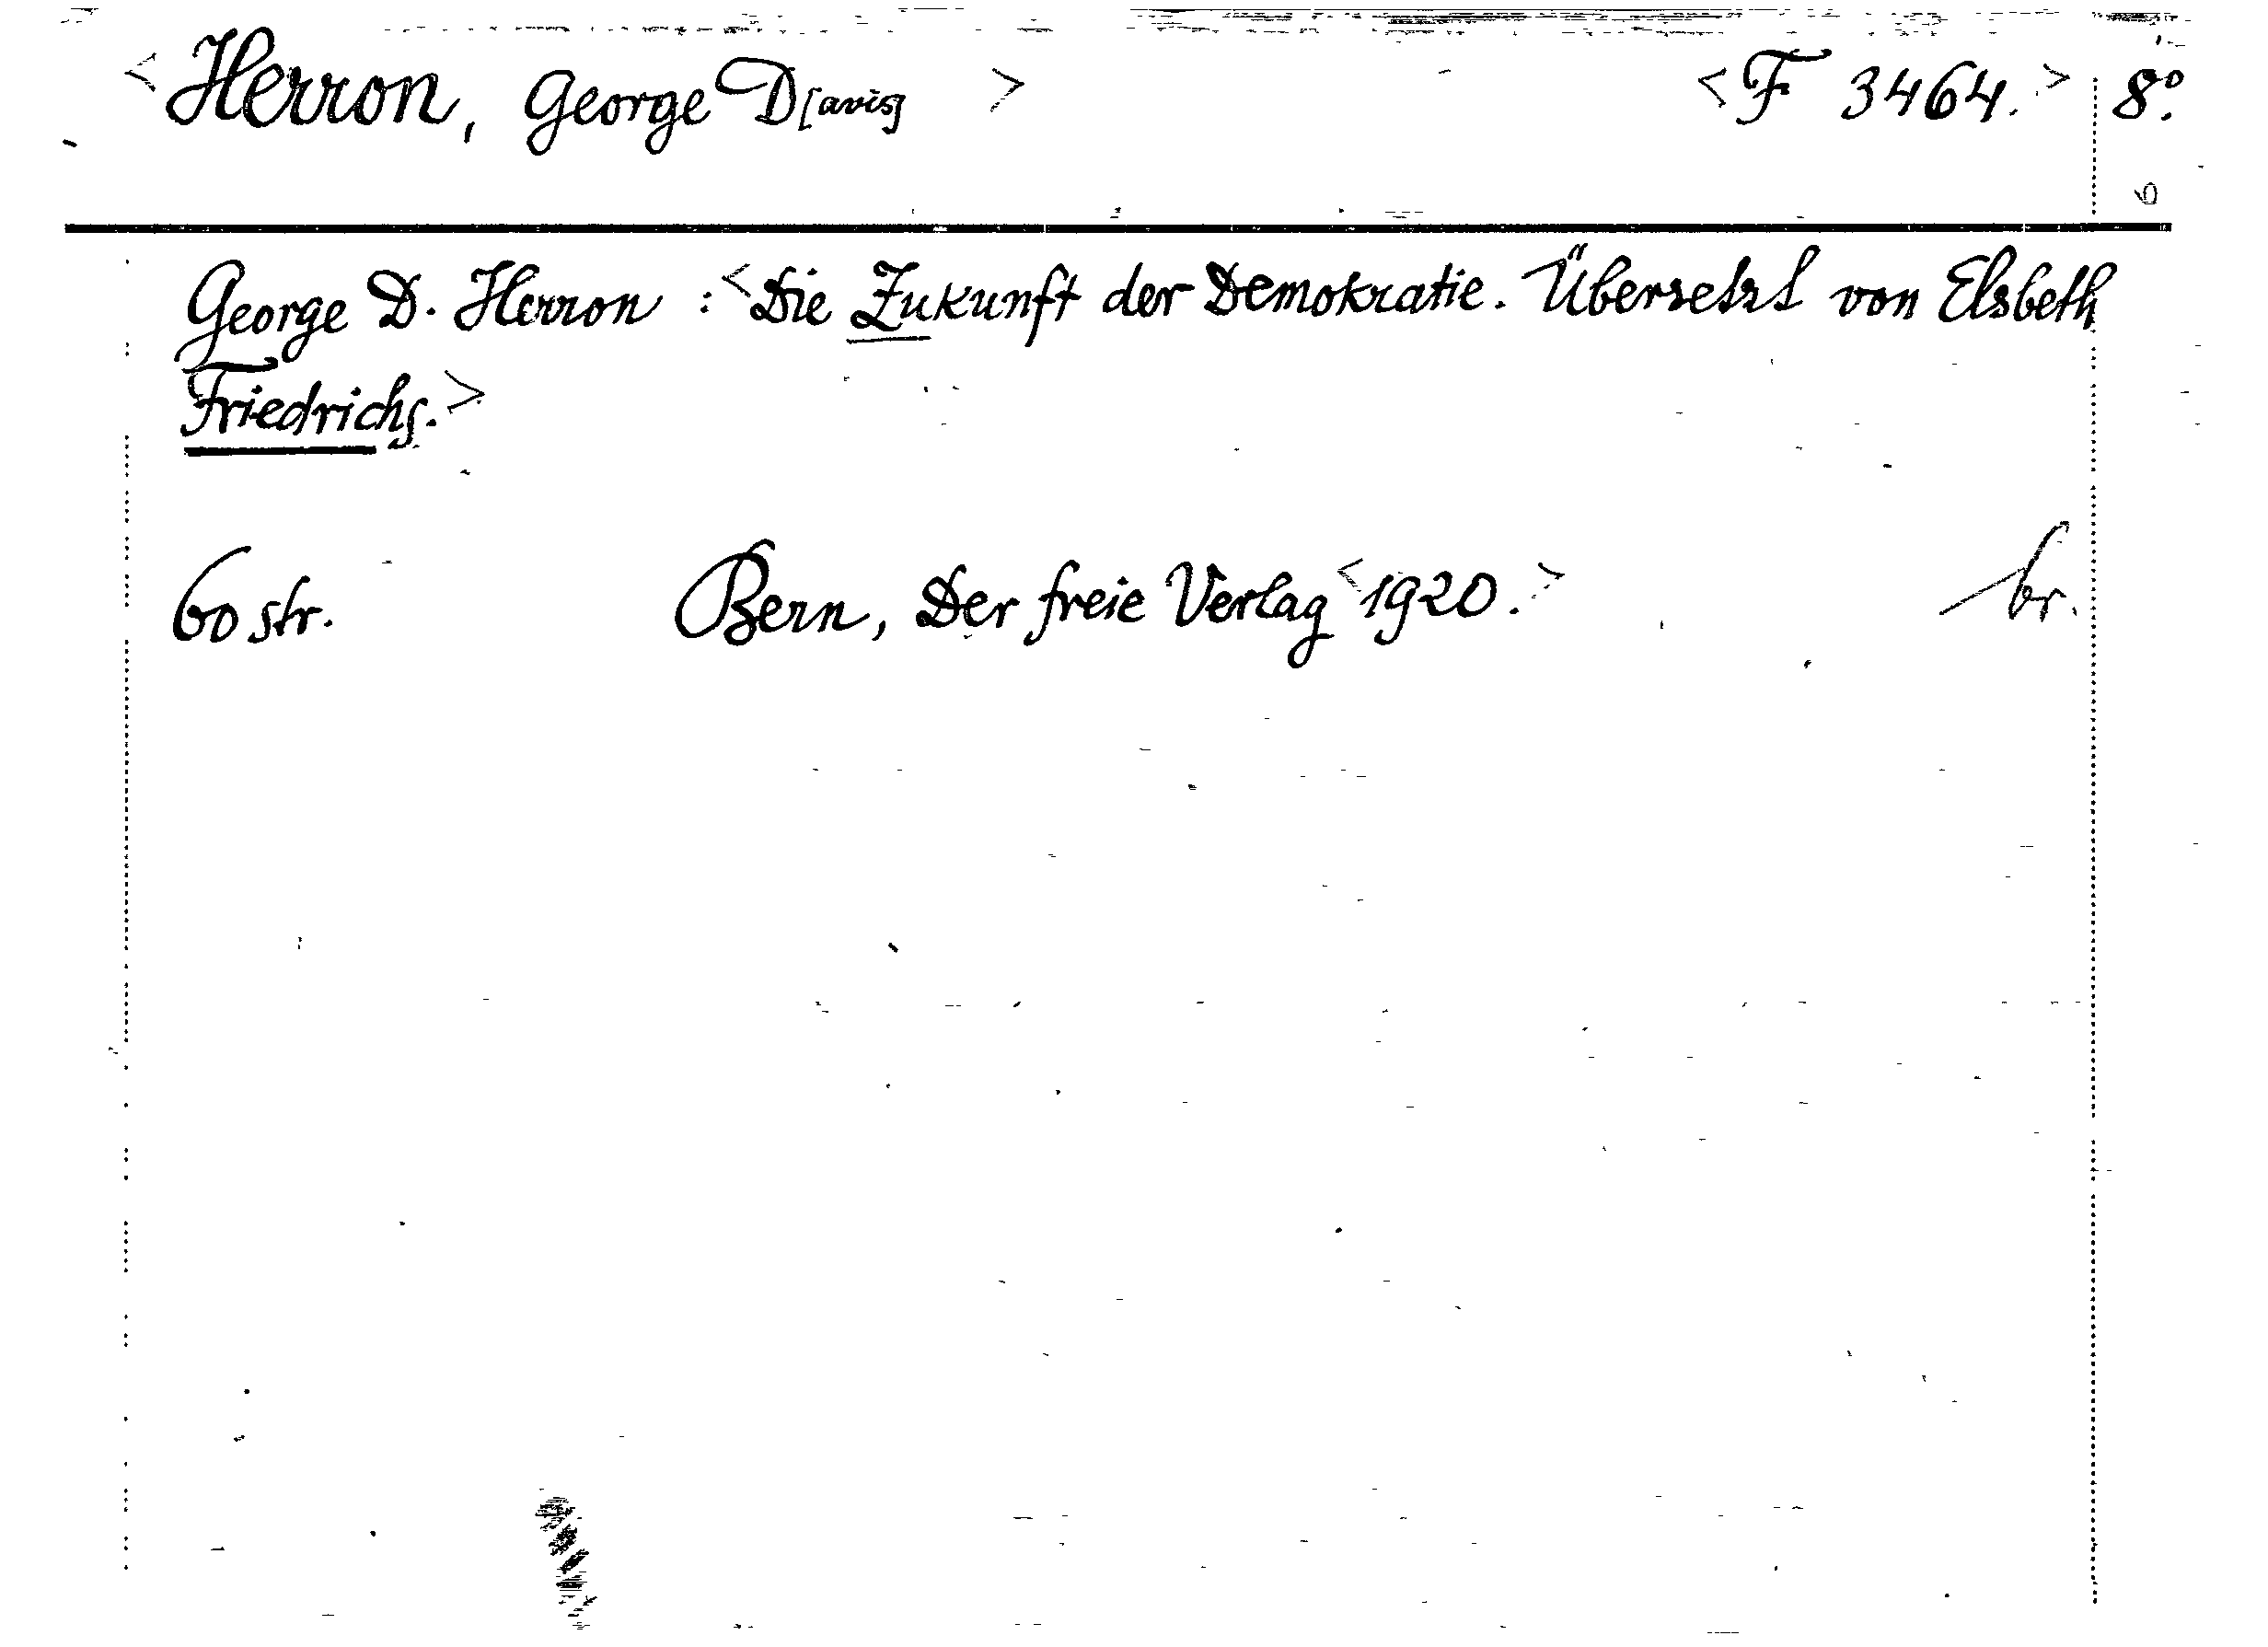 <Herron, George D[avis] > <F 3464.> 8°.
6
George D. Herron : <Die Zukunft der Demokratie. Übersetzt von Elsbeth
Friedrichs.>
60 str. Bern, Der freie Verlag <1920.> br.